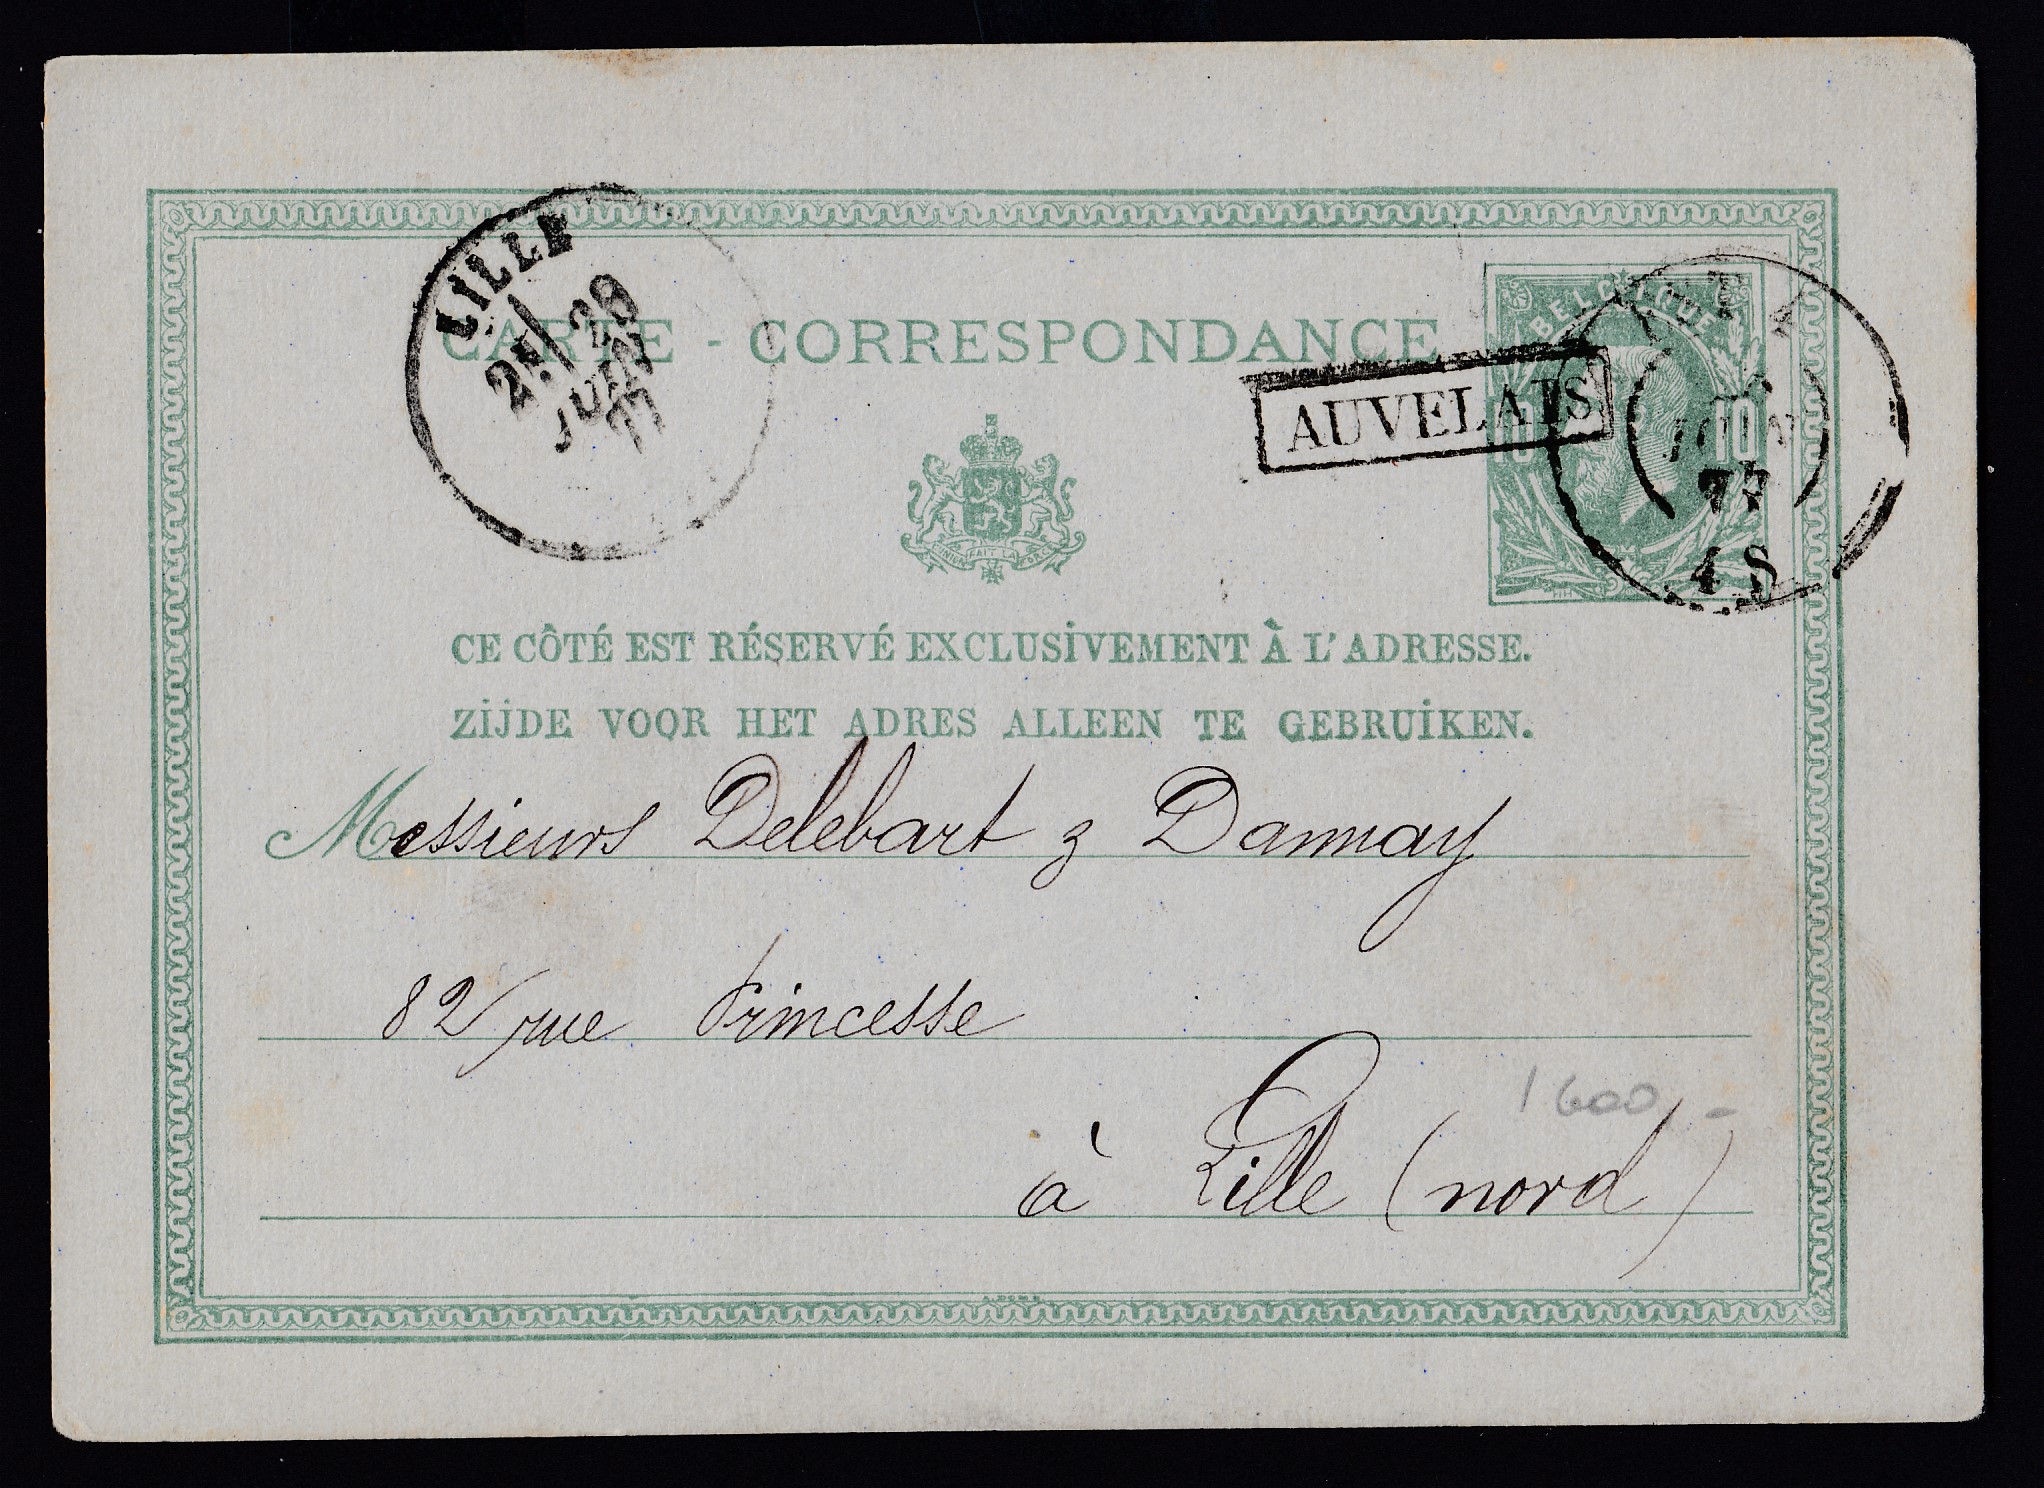 LILLE
2E/ 20
JUIN
77
CARTE - CORRESPONDANCE
BELGIQUE
10 10
AUVELAIS
JUIN
77
4 S
L'UNION FAIT LA FORCE
CE CÔTÉ EST RÉSERVÉ EXCLUSIVEMENT À L'ADRESSE.
ZIJDE VOOR HET ADRES ALLEEN TE GEBRUIKEN.
Messieurs Delebart & Dannay
82 rue Princesse
1600,-
à Lille (nord)